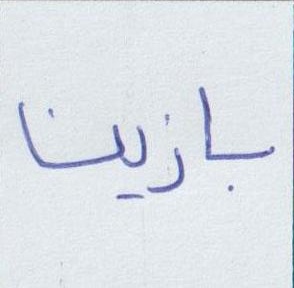 بازينا